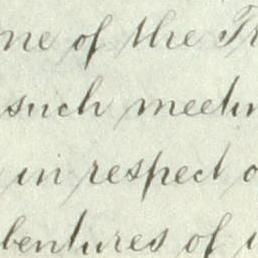 me of the Th
such meetin
in respect o
bentures of